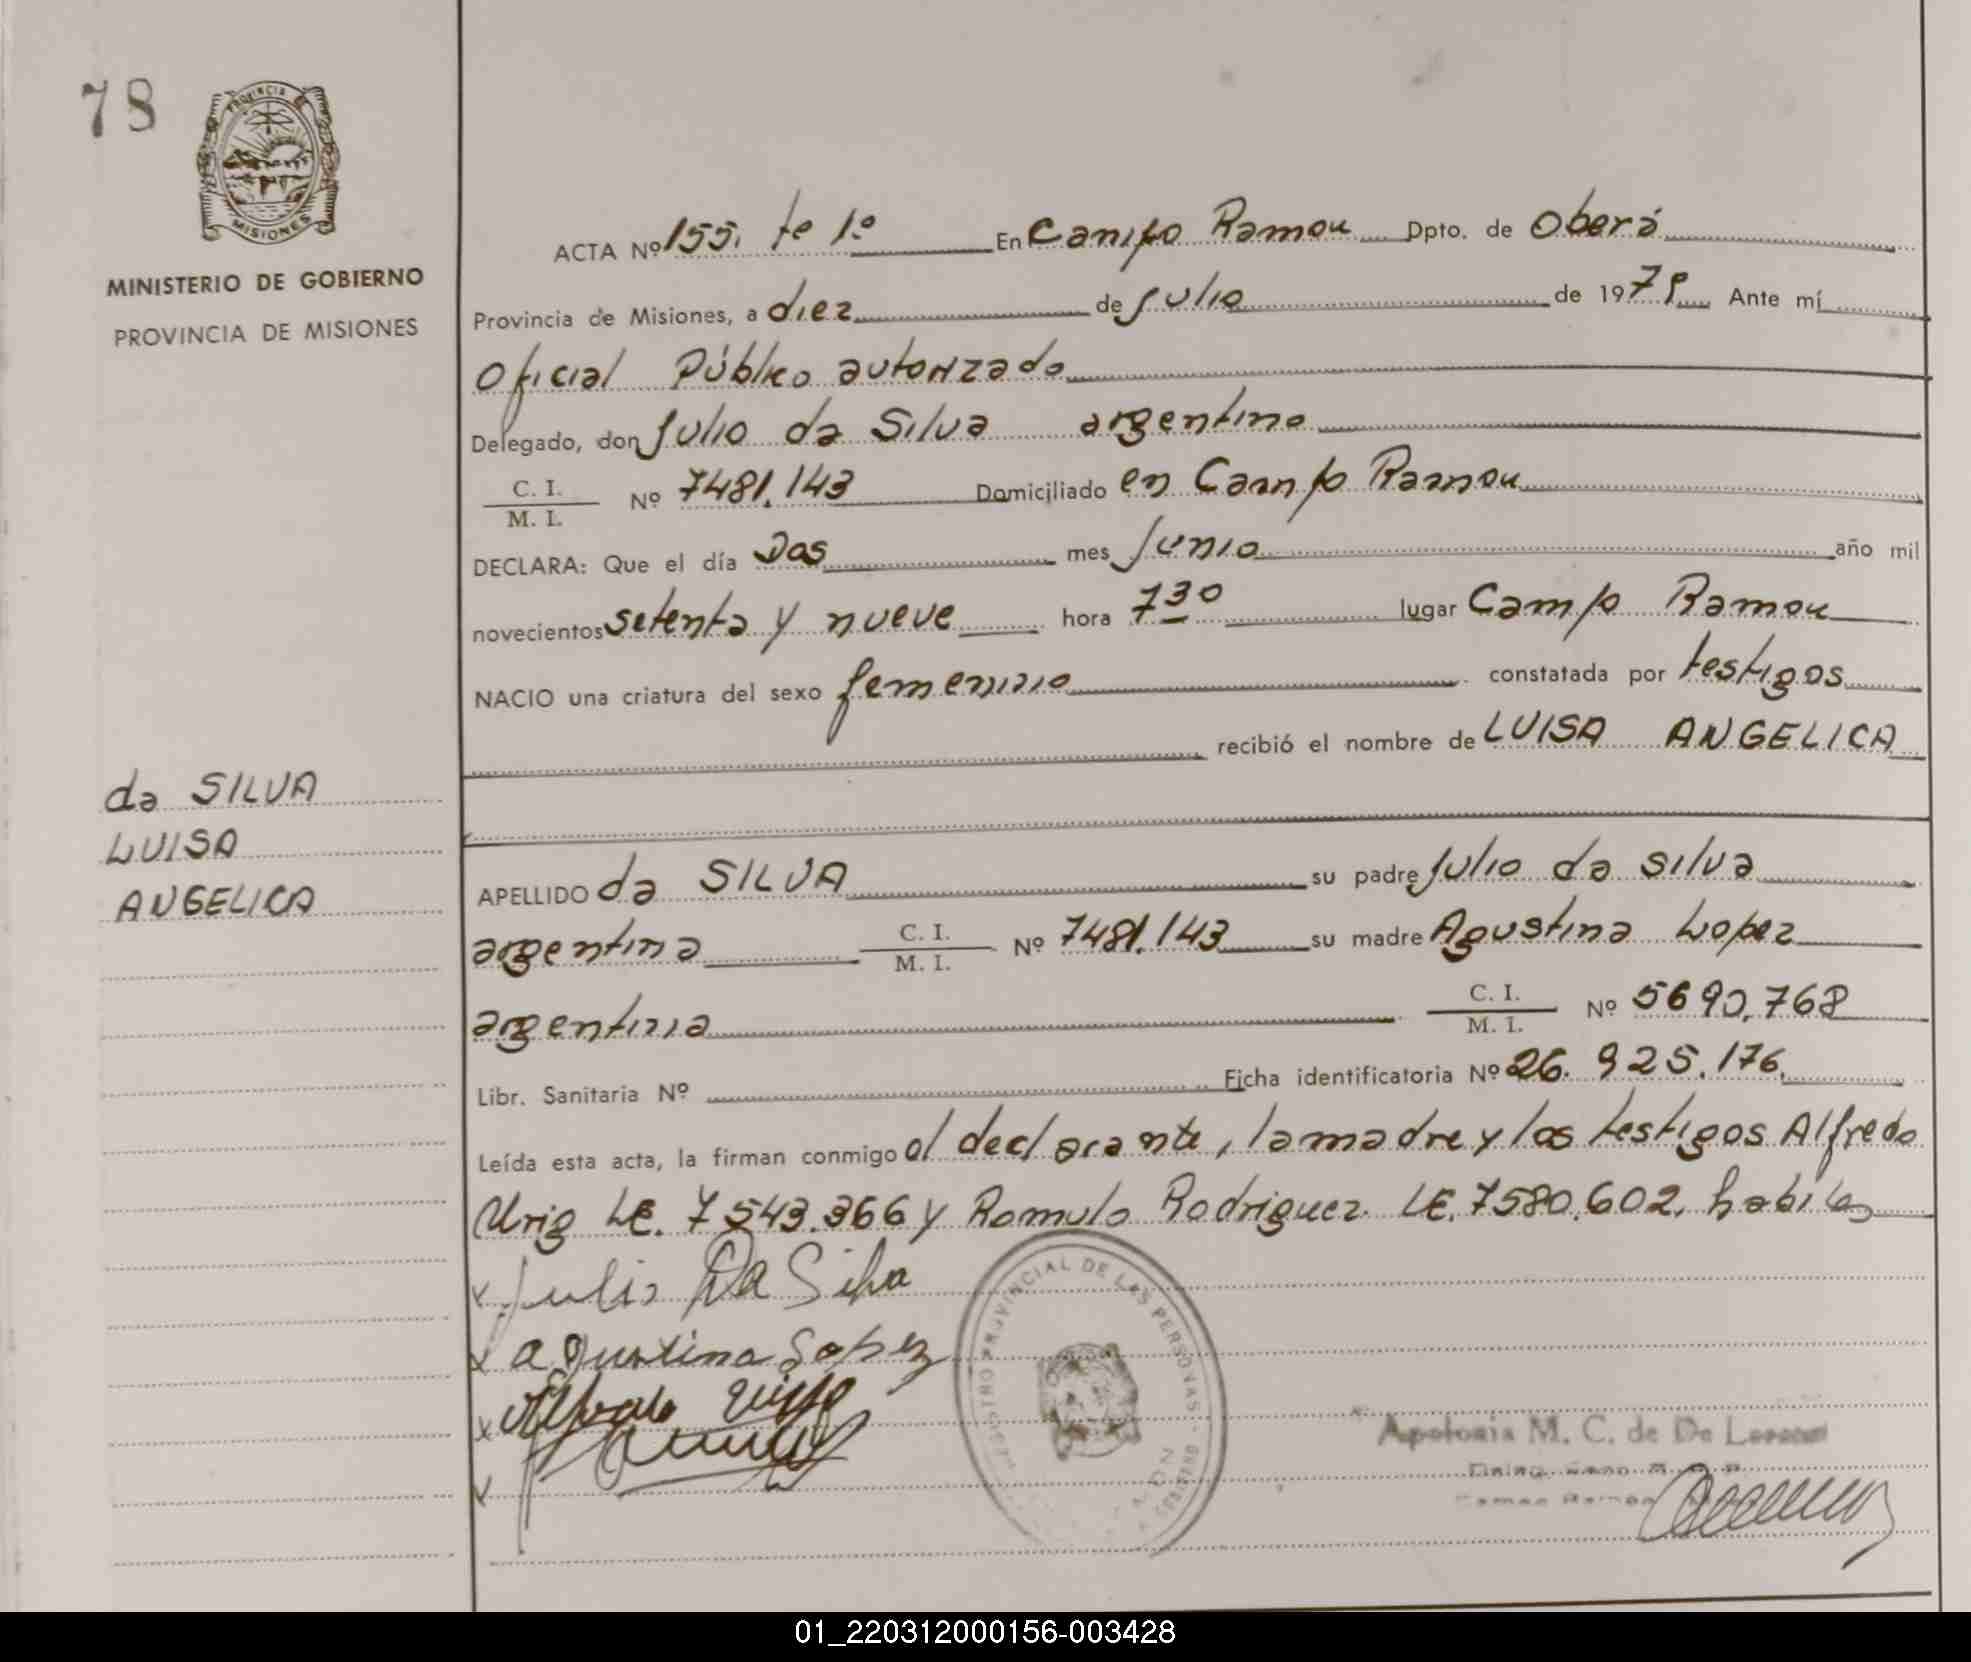 78
PROVINCIA DE
MISIONES
MINISTERIO DE GOBIERNO
PROVINCIA DE MISIONES
ACTA Nº 155. te 1º En Campo Ramon Dpto. de Oberá
Provincia de Misiones, a diez de Julio de 1979 Ante mí
Oficial Público autorizado
Delegado, don Julio da Silva argentino
C. I.
M. I.
Nº 7481.143 Domiciliado en Campo Ramon
DECLARA: Que el día Dos mes Junio año mil
novecientos setenta y nueve hora 7 30 lugar Campo Ramon
NACIO una criatura del sexo femenino constatada por testigos
recibió el nombre de LUISA ANGELICA
da SILVA
LUISA
ANGELICA
APELLIDO da SILVA su padre Julio da Silva
argentina C. I. M. I. Nº 7481.143 su madre Agustina Lopez
argentina C. I. M. I. Nº 5690.768
Libr. Sanitaria Nº Ficha identificatoria Nº 26.925.176.
Leída esta acta, la firman conmigo el declarante, la madre y los testigos Alfredo
LE. 7543.366 y Romulo Rodriguez LE. 7580.602. habiles
x Julio Da Silva
x agustina Lopez
x
x
REGISTRO PROVINCIAL DE LAS PERSONAS
Apolonia M. C. de De
01_220312000156-003428